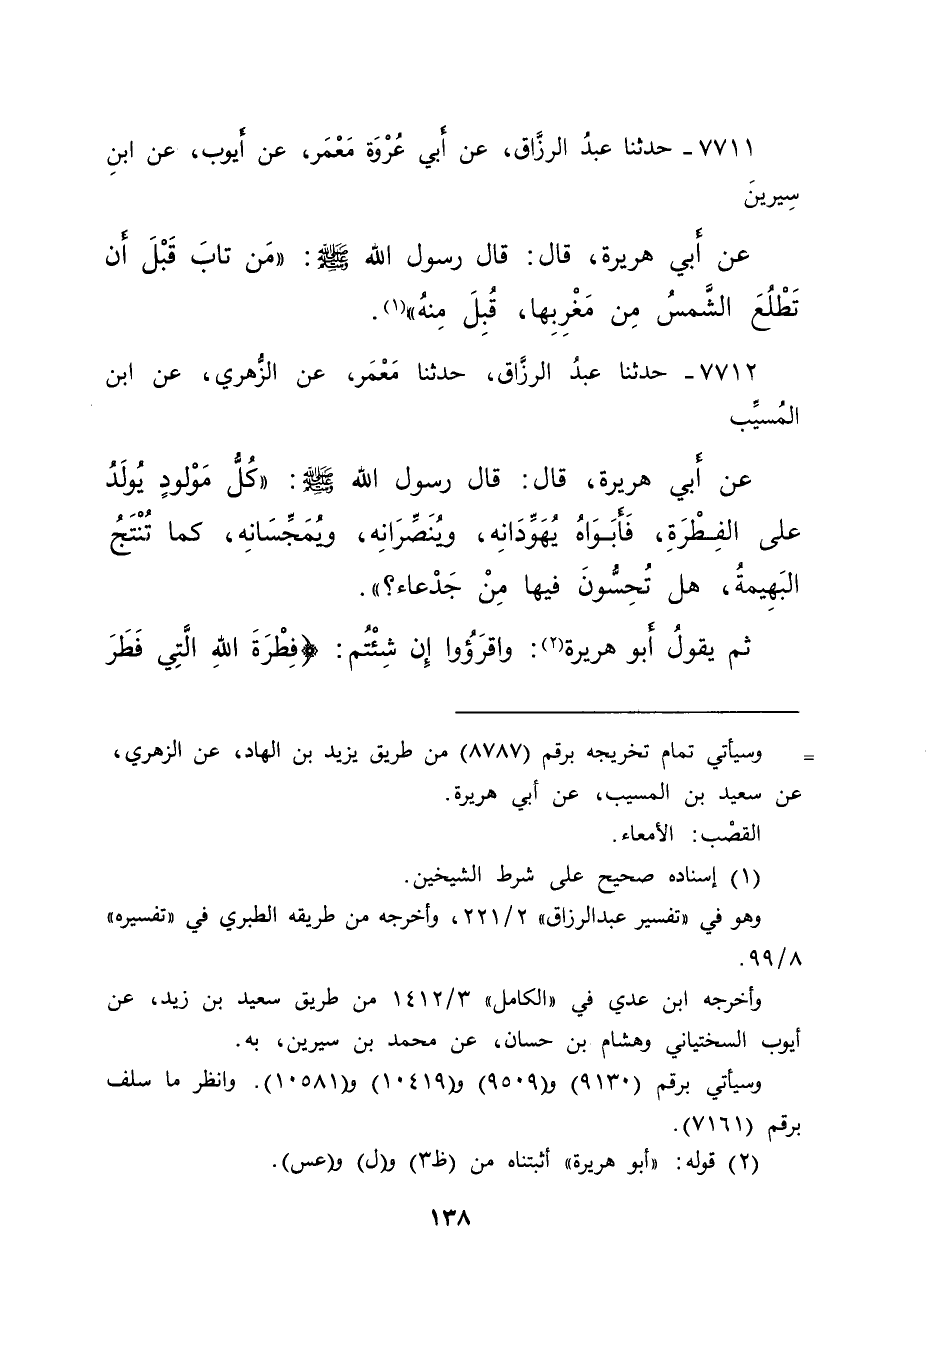 ٧٧١١ ـ حدثنا عبدُ الرزَّاق، عن أَبي عُرْوَة مَعْمَر، عن أَيوب، عن ابنِ
سِيرينَ
عن أَبي هريرة، قال: قال رسول الله ﷺ: «مَن تابَ قَبْلَ أَن
تَطْلُعَ الشَّمسُ مِن مَغْرِبِها، قُبِلَ مِنهُ»(١).
٧٧١٢ ـ حدثنا عبدُ الرزَّاق، حدثنا مَعْمَر، عن الزُّهري، عن ابن
المُسيِّب
عن أَبي هريرة، قال: قال رسول الله ﷺ: «كُلُّ مَوْلودٍ يُولَدُ
على الفِـطْرَةِ، فَأَبَـواهُ يُهَوِّدَانِه، ويُنَصِّرَانِه، ويُمَجِّسَانِه، كما تُنْتَجُ
البَهِيمةُ، هل تُحِسُّونَ فيها مِنْ جَدْعاء؟».
ثم يقولُ أَبو هريرة(٢): واقرَؤُوا إن شِئْتُم: ﴿فِطْرَةَ اللهِ الَّتِي فَطَرَ
= وسيأتي تمام تخريجه برقم (٨٧٨٧) من طريق يزيد بن الهاد، عن الزهري،
عن سعيد بن المسيب، عن أبي هريرة.
القصْب: الأمعاء.
(١) إسناده صحيح على شرط الشيخين.
وهو في «تفسير عبدالرزاق» ٢٢١/٢، وأخرجه من طريقه الطبري في «تفسيره»
٩٩/٨.
وأخرجه ابن عدي في «الكامل» ١٤١٢/٣ من طريق سعيد بن زيد، عن
أيوب السختياني وهشام بن حسان، عن محمد بن سيرين، به.
وسيأتي برقم (٩١٣٠) و(٩٥٠٩) و(١٠٤١٩) و(١٠٥٨١). وانظر ما سلف
برقم (٧١٦١).
(٢) قوله: «أبو هريرة» أثبتناه من (ظ٣) و(ل) و(عس).
١٣٨